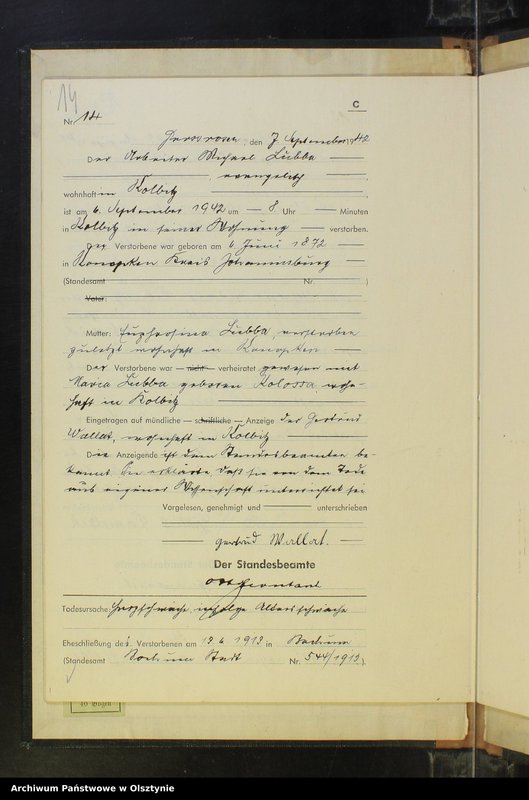 14
C
Nr. 14
, den 7. September 1942
Der Arbeiter Michael Lubba
, evangelisch
wohnhaft in Kolbitz
ist am 6. September 1942 um 8 Uhr Minuten
in Kolbitz in seiner Wohnung verstorben.
Der Verstorbene war geboren am 6. Juni 1872
in Konopken Kreis Johannisburg
(Standesamt Nr. )
Vater:
Mutter: Euphrosina Lubba, verstorben
zuletzt wohnhaft in Konopken
Der Verstorbene war — nicht — verheiratet gewesen mit
Maria Lubba geborene Kolossa, wohn-
haft in Kolbitz
Eingetragen auf mündliche — schriftliche — Anzeige der Gertrud
Wallat, wohnhaft in Kolbitz
Die Anzeigende ist dem Standesbeamten be-
kannt. Sie erklärte, daß sie von dem Tode
aus eigener Wissenschaft unterrichtet sei
Vorgelesen, genehmigt und unterschrieben
Gertrud Wallat.
Der Standesbeamte
Todesursache: Herzschwäche infolge Altersschwäche
Eheschließung des Verstorbenen am 1912 in Bochum
(Standesamt Bochum Stadt Nr. 544/1912)
Archiwum Państwowe w Olsztynie